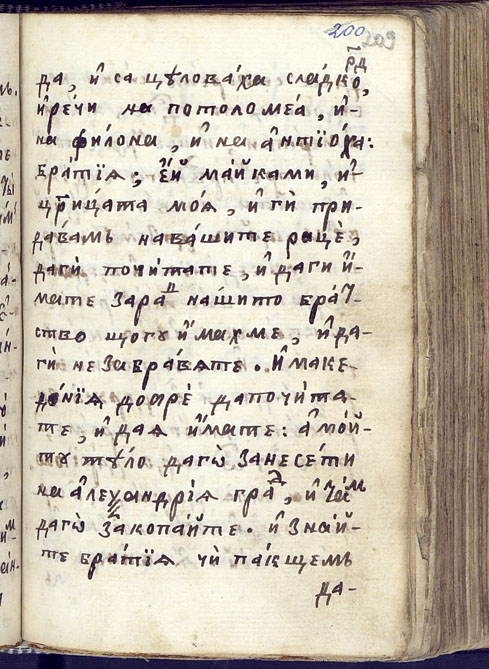 200
209
р҃д
да, и҆ са цѣлова́ха сла́дко,
и҆ речи на потоломеа́, и҆-
на фило́на, и҆ на а҆нтїо́ха:
братїѧ; е҆й ма́йками, и҆-
цр҃и́цата моѧ̀, и҆ ги̏ при-
дава́мь нава́шите рацѐ,
даги̏ почи́тате, и҆ даги̏ и҆-
мате зара́п на́шито бра́т-
ство що́гу и҆махме, и҆ да-
ги̏ не забра́вѧте. И҆ маке-
до́нїѧ добрѐ дапочи́та-
те, и҆ даѧ и҆́мате: а҆ мо́й-
ту тѣ́ло даго̀ занесе́ти
на а҆леѯандрі́ѧ гра́д, и҆ та́м
даго̀ закопа́йте. и҆ зна́й-
те бра́тїѧ чѝ па́кщемь
да-